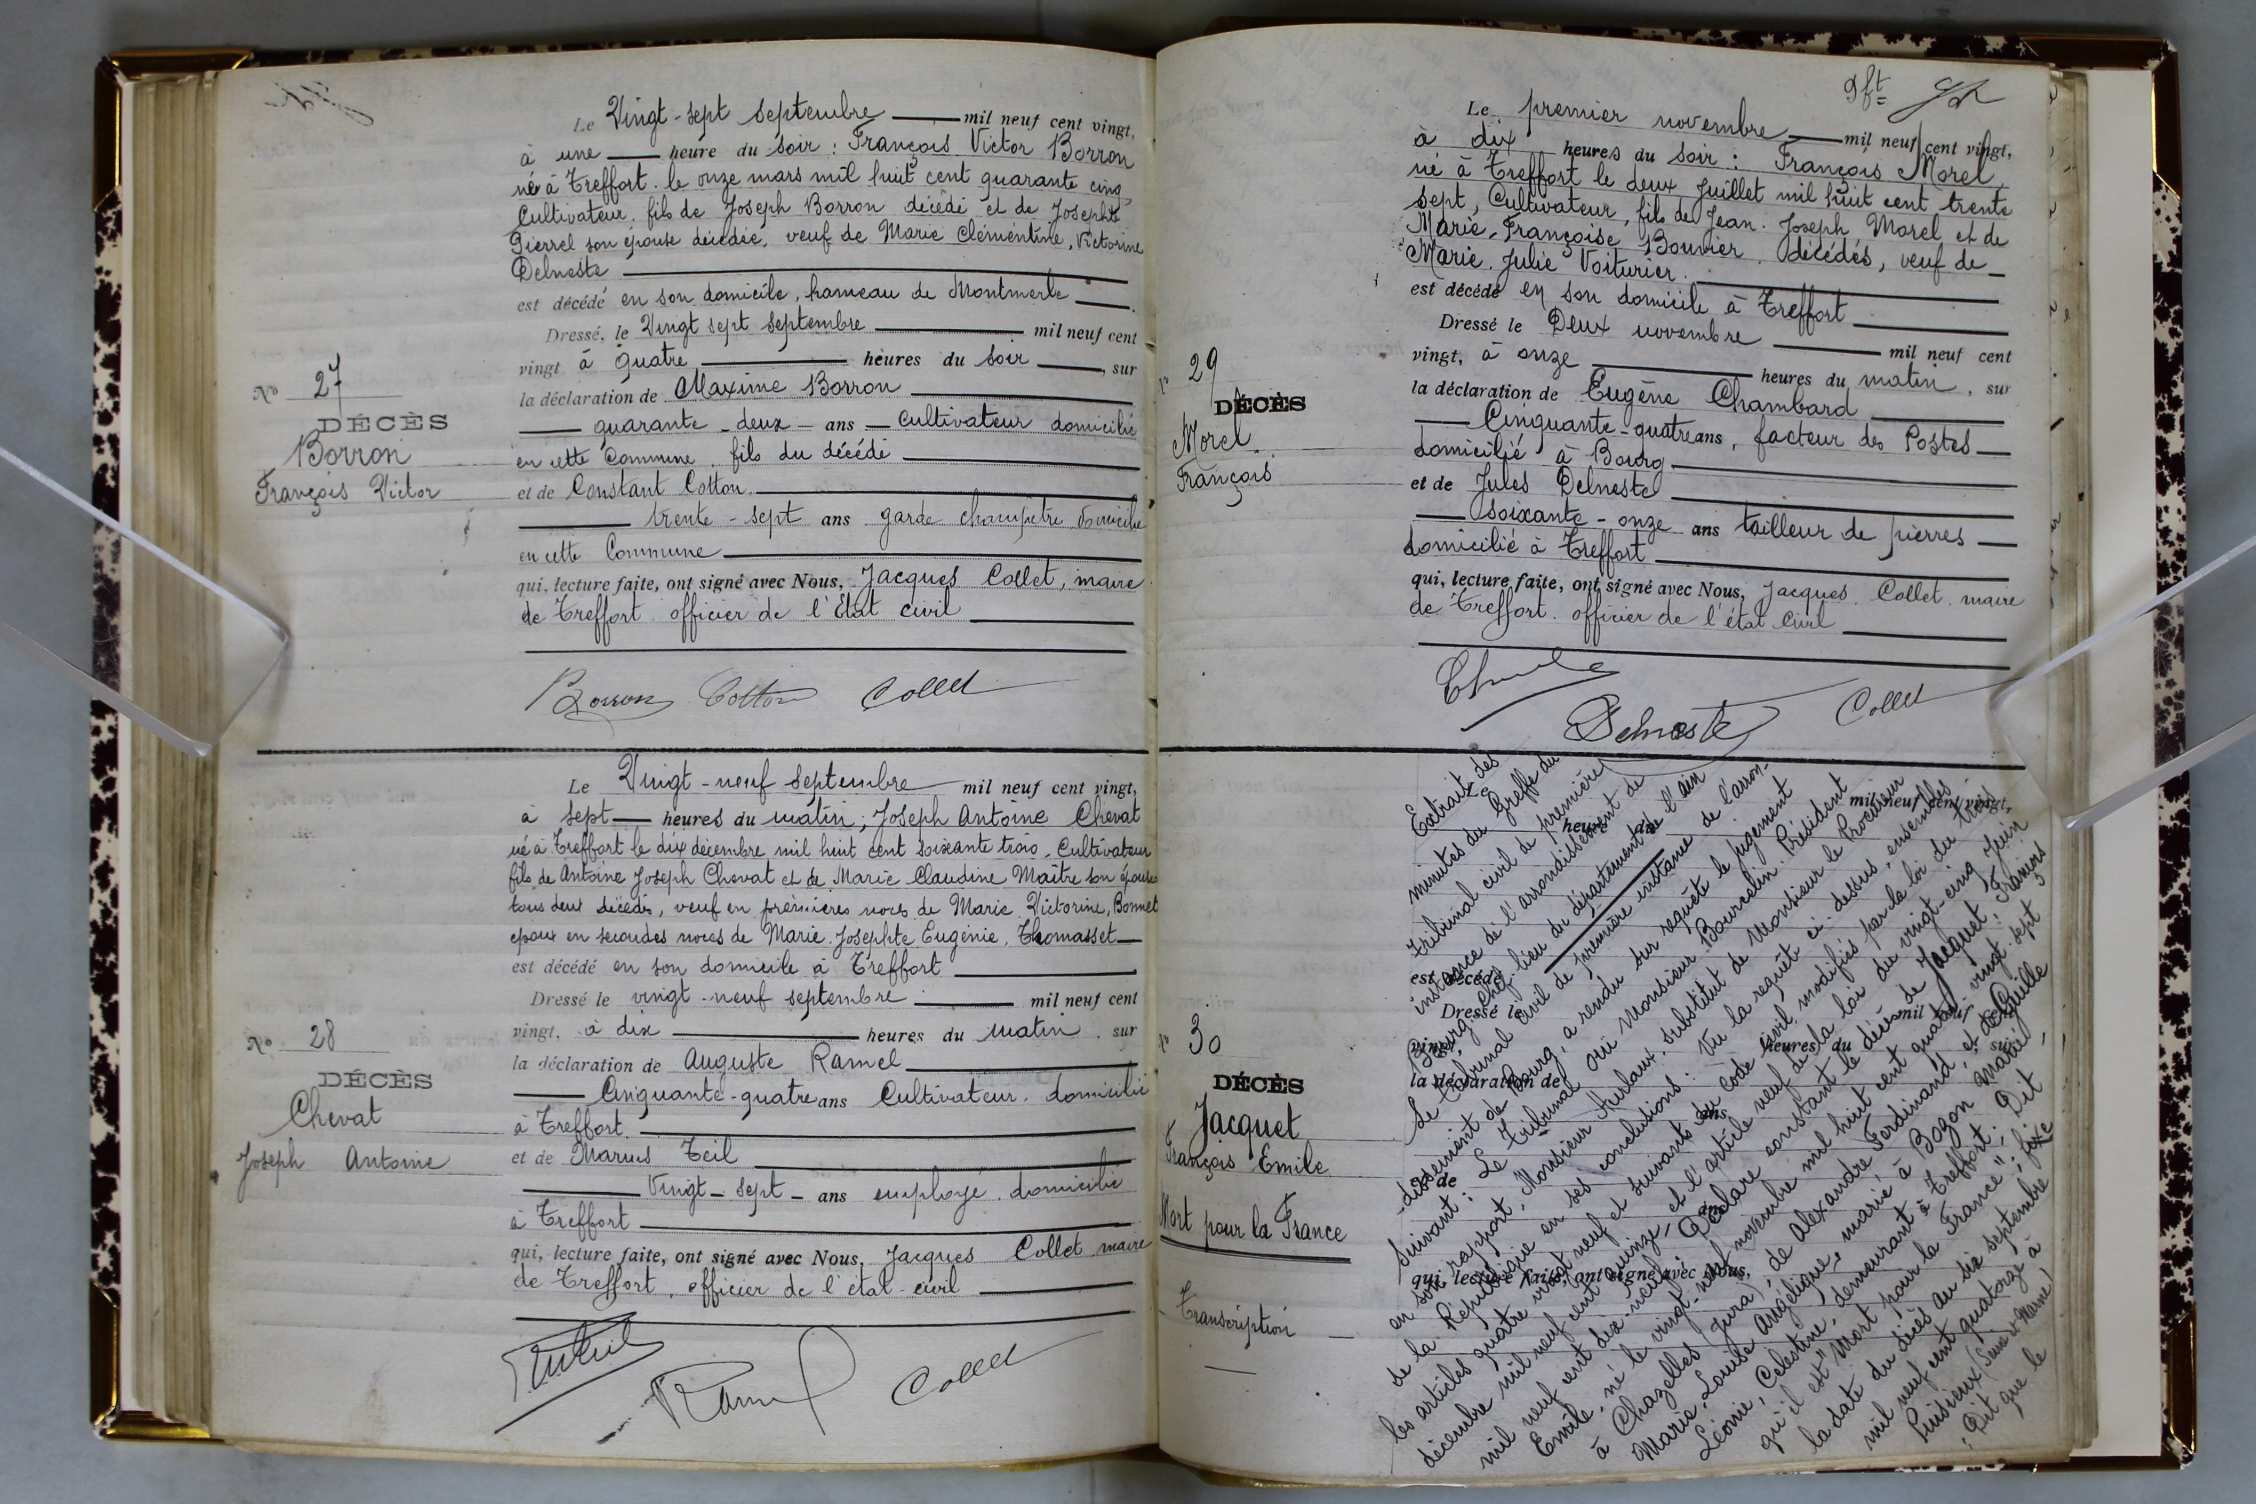 Le Vingt-sept septembre mil neuf cent vingt,
à une heure du soir : François Victor Borron
né à Treffort. le onze mars mil huit cent quarante cinq,
Cultivateur. fils de Joseph Borron décédé et de Josephte
Pierrel son épouse décédée, veuf de Marie Clémentine, Victorine
Delneste
est décédé en son domicile, hameau de Montmerle
Dressé, le Vingt sept septembre mil neuf cent
vingt à quatre heures du soir, sur
la déclaration de Maxime Borron
quarante-deux ans cultivateur domicilié
en cette Commune, fils du décédé
et de Constant Cotton
trente-sept ans garde champêtre domicilié
en cette Commune
qui, lecture faite, ont signé avec Nous, Jacques Collet, maire
de Treffort officier de l'État civil
No 27
DÉCÈS
Borron
François Victor
Borron Cotton Collet
Le Vingt-neuf septembre mil neuf cent vingt,
à sept heures du matin; Joseph Antoine Chevat
né à Treffort le dix décembre mil huit cent soixante trois, Cultivateur
fils de Antoine Joseph Chevat et de Marie Claudine Maître son épouse
tous deux décédés, veuf en premières noces de Marie Victorine, Bonnet
époux en secondes noces de Marie. Josephte Eugénie. Thomasset
est décédé en son domicile à Treffort
Dressé le vingt-neuf septembre mil neuf cent
vingt, à dix heures du matin, sur
la déclaration de Auguste Ramel
Cinquante-quatre ans Cultivateur. domicilié
à Treffort.
et de Marius Teil
Vingt-sept-ans employé. domicilié
à Treffort
qui, lecture faite, ont signé avec Nous, Jacques Collet maire
de Treffort, officier de l'état-civil
No 28
DÉCÈS
Chevat
Joseph Antoine
Ramel Collet
9ft
Le premier novembre mil neuf cent vingt,
à dix heures du soir : François Morel,
né à Treffort le deux juillet mil huit cent trente
sept, Cultivateur, fils de Jean. Joseph Morel et de
Marie-Françoise Bouvier. décédés, veuf de
Marie. Julie Voiturier.
est décédé en son domicile à Treffort
Dressé le Deux novembre mil neuf cent
vingt, à onze heures du matin, sur
la déclaration de Eugène Chambard
Cinquante-quatre ans, facteur des Postes
domicilié à Bourg
et de Jules Delneste
soixante-onze ans tailleur de pierres
domicilié à Treffort
qui, lecture faite, ont signé avec Nous, Jacques. Collet. maire
de Treffort. officier de l'état civil
No 29
DÉCÈS
Morel
François
Delneste Collet
No 30
DÉCÈS
Jacquet
François Emile
Mort pour la France
Transcription
mil neuf cent vingt,
heures du
est décédé
Dressé le mil neuf cent
vingt, heures du sur
la déclaration de
ans
et de
ans
qui, lecture faite, ont signé avec Nous,
Extrait des
minutes du Greffe du
Tribunal civil de première
instance de l'arrondissement de
Bourg, chef-lieu du département de l'ain
Le Tribunal civil de première instance de l'arron-
-dissement de Bourg, a rendu sur requête le jugement
suivant: Le Tribunal ouï Monsieur Bourcelin Président
en son rapport, Monsieur substitut de Monsieur le Procureur
de la République en ses conclusions: Vu la requête ci-dessus, ensemble
les articles quatre vingt neuf et suivants du Code civil modifiés par la loi du trois
décembre mil neuf cent quinze, et l'article neuf de la loi du vingt-cinq Juin
mil neuf cent dix-neuf; Déclare constant le décès de Jacquet, François
Emile, né le vingt-neuf novembre mil huit cent quatre vingt sept
à Chazelles (Jura) de Alexandre Ferdinand et de Guille
Marie-Louise Angélique, marié à Bozon Marie
Léonie, Célestine, demeurant à Treffort; Dit
qu'il est "Mort pour la France"; fixe
la date du décès au six septembre
mil neuf cent quatorze à
Puisieux (Seine et Marne)
; Dit que le